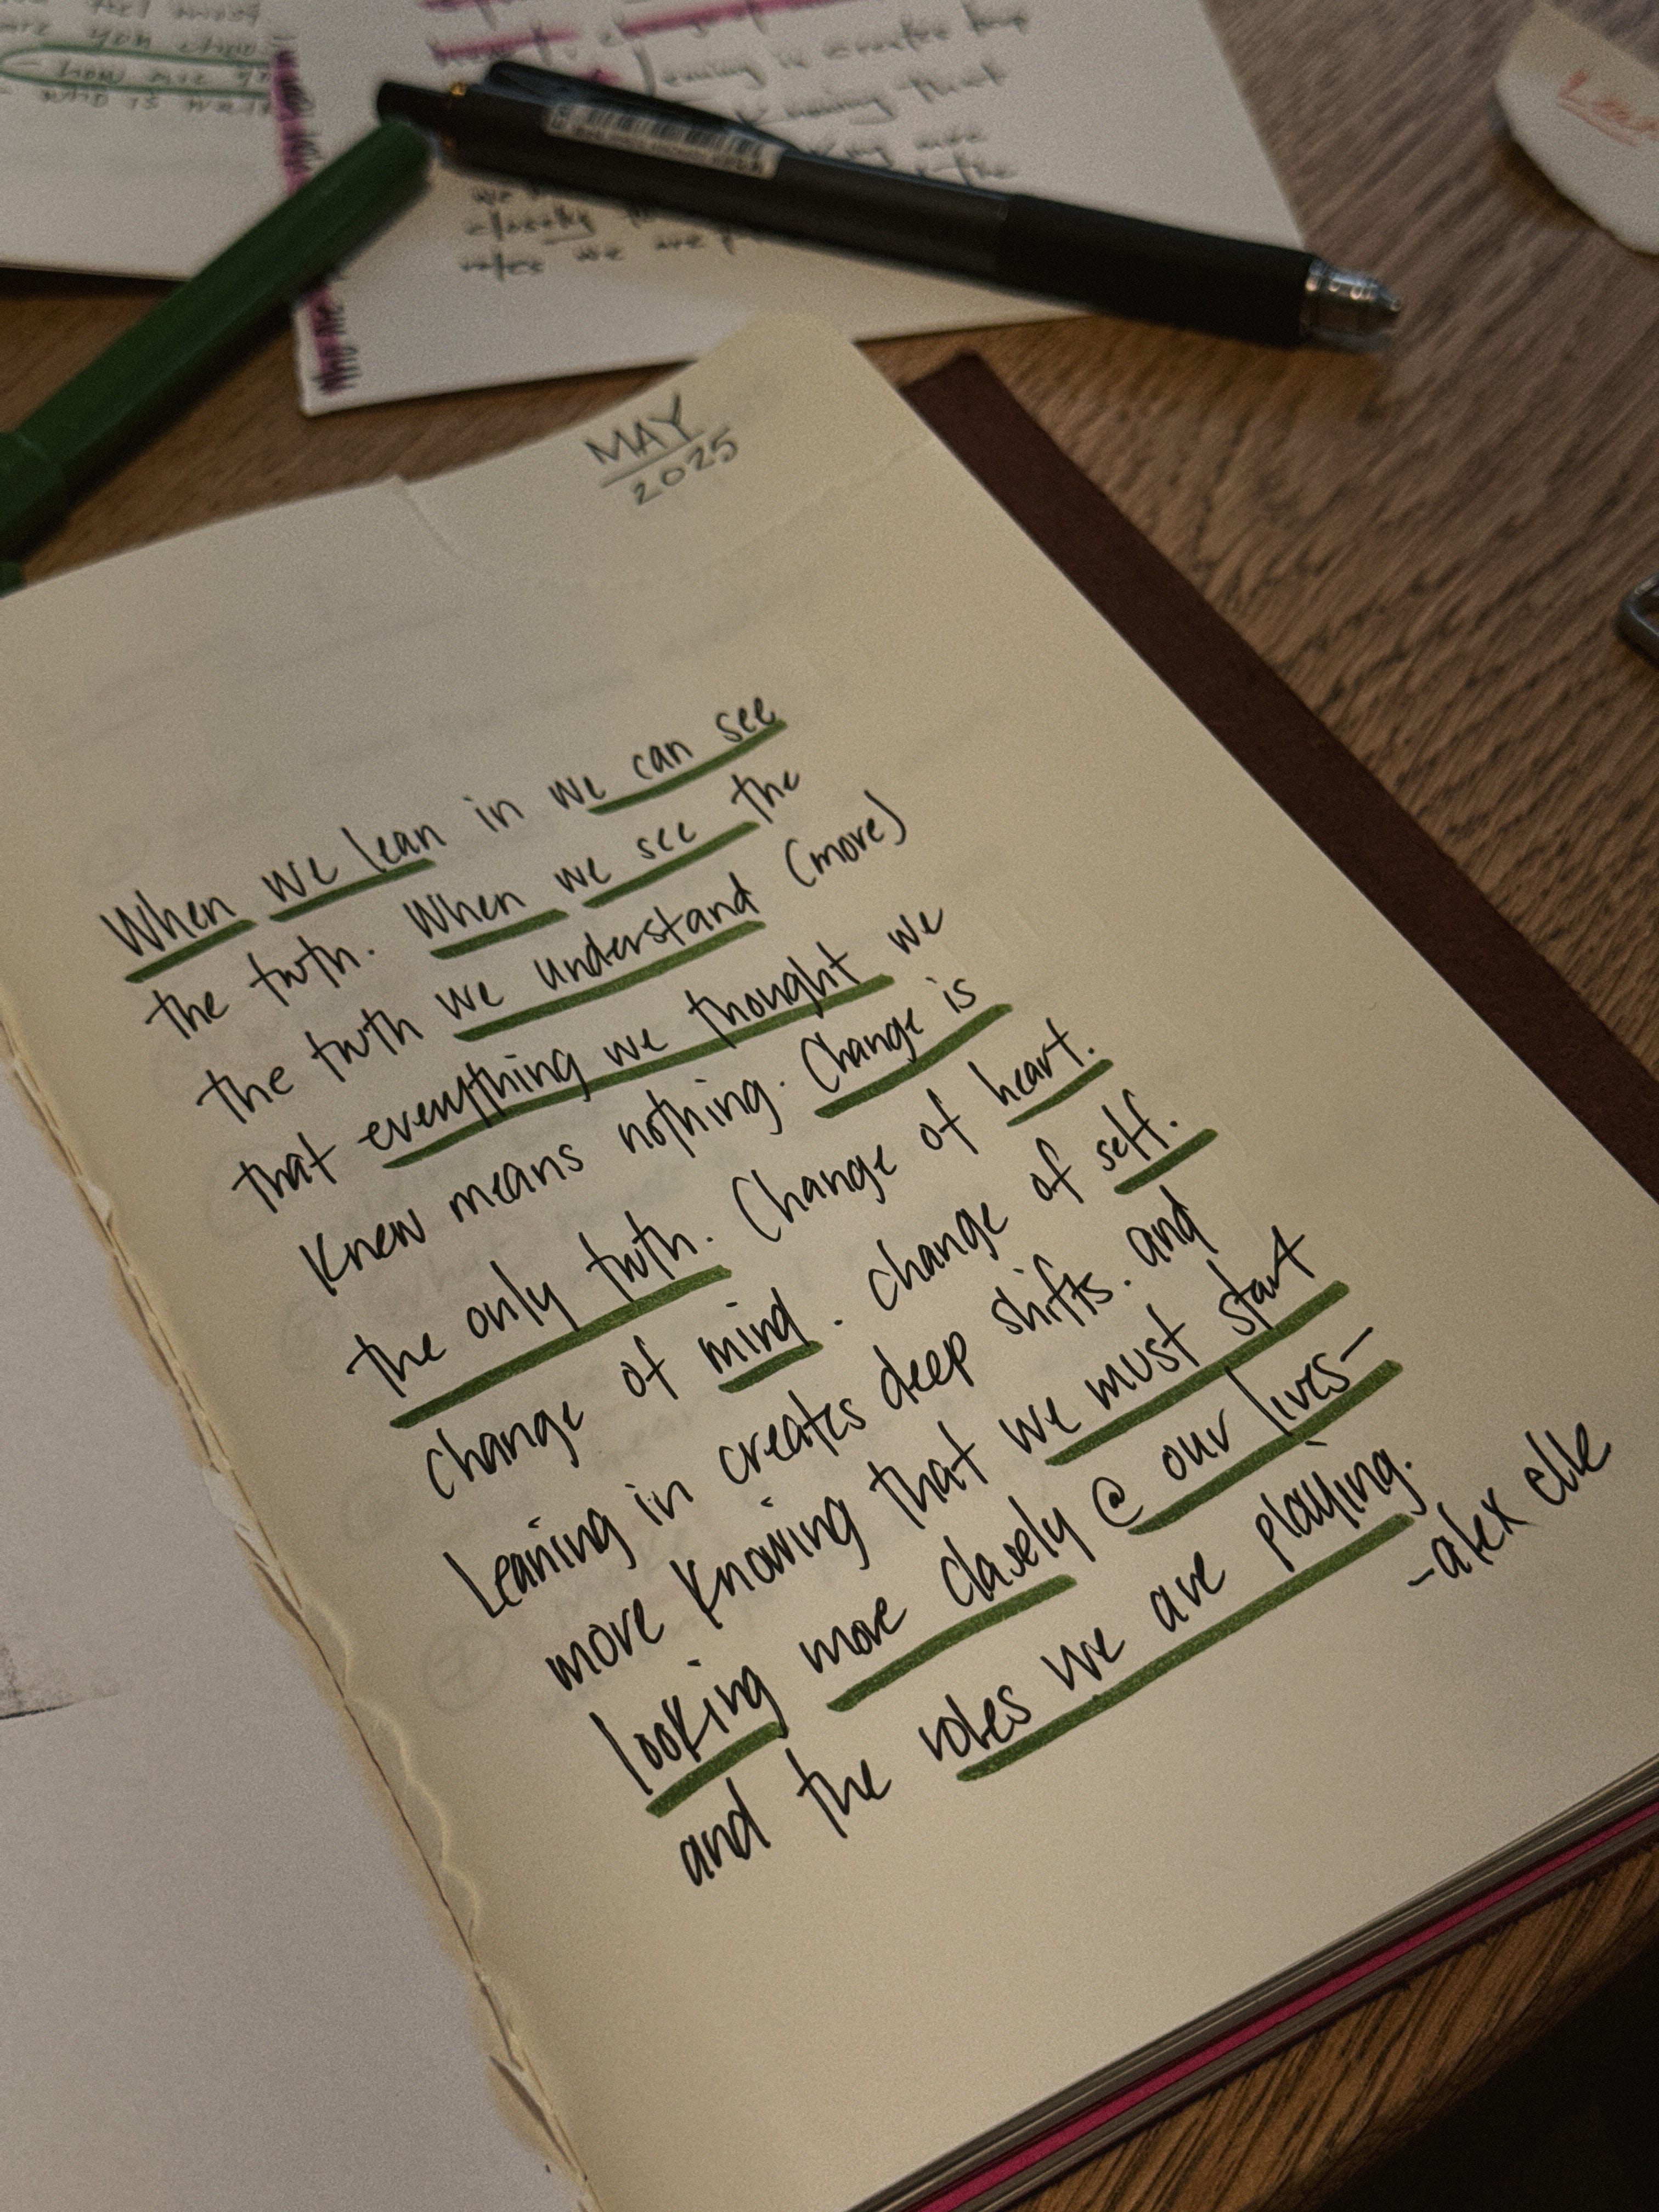 MAY
2025
When we lean in we can see
the truth. When we see the
the truth we understand (more)
that everything we thought we
knew means nothing. Change is
the only truth. Change of heart.
change of mind. change of self.
Leaning in creates deep shifts. and
more knowing that we must start
looking more closely @ our lives—
and the roles we are playing.
-alex elle
how are
who is
eaning in creates
knowing that
are
the
we
closely
roles we are